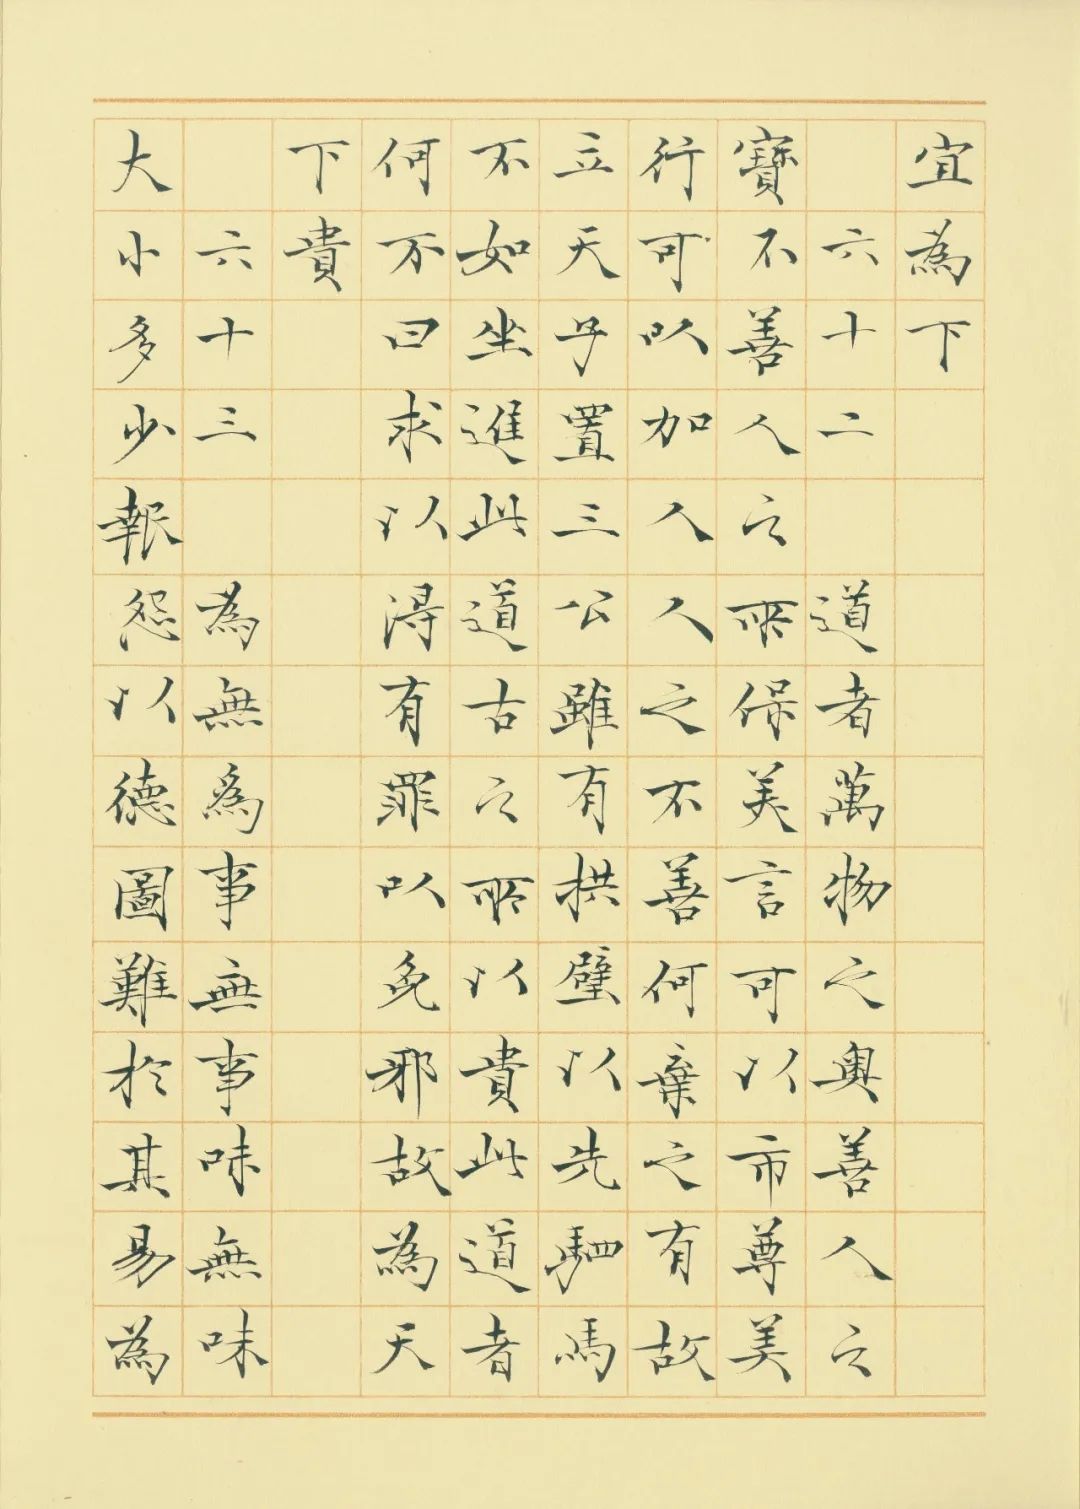 宜為下
六十二　道者萬物之奧善人之
寶不善人之所保美言可以市尊美
行可以加人人之不善何棄之有故
立天子置三公雖有拱璧以先駟馬
不如坐進此道古之所以貴此道者
何不曰求以得有罪以免邪故為天
下貴
六十三　為無為事無事味無味
大小多少報怨以德圖難於其易為